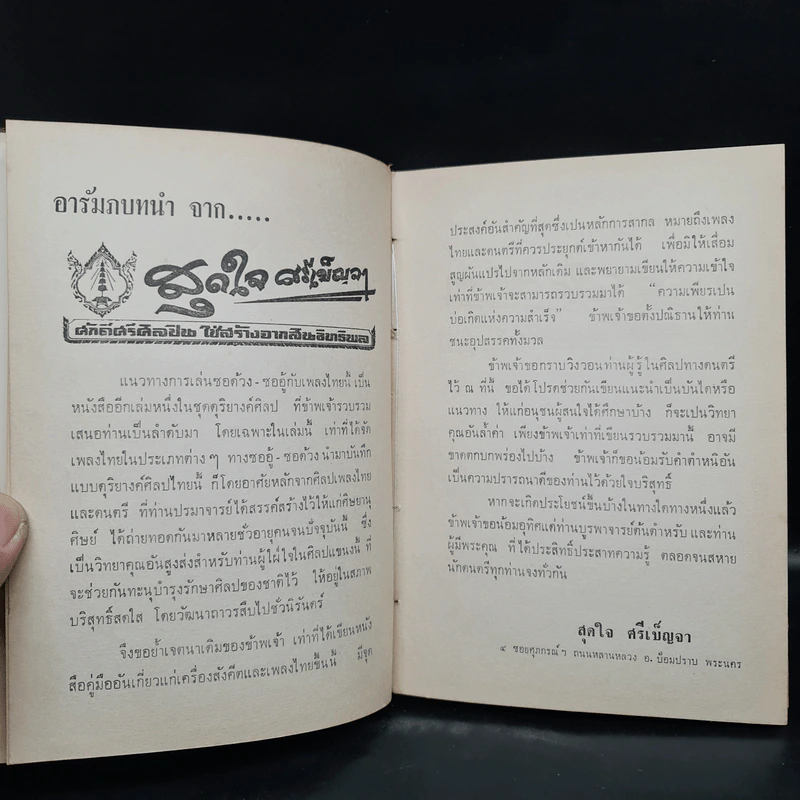 อารัมภบทนำ จาก.....
สุดใจ ศรีเบ็ญจา
ศักดิ์ศรีศิลปิน ใช่สร้างจากสินอิทธิพล
แนวทางการเล่นซอด้วง - ซออู้กับเพลงไทยนี้ เป็น
หนังสืออีกเล่มหนึ่งในชุดดุริยางค์ศิลป ที่ข้าพเจ้ารวบรวม
เสนอท่านเป็นลำดับมา โดยเฉพาะในเล่มนี้ เท่าที่ได้จัด
เพลงไทยในประเภทต่าง ๆ ทางซออู้ - ซอด้วง นำมาบันทึก
แบบดุริยางค์ศิลปไทยนี้ ก็โดยอาศัยหลักจากศิลปเพลงไทย
และดนตรี ที่ท่านปรมาจารย์ได้สรรค์สร้างไว้ให้แก่ศิษยานุ
ศิษย์ ได้ถ่ายทอดกันมาหลายชั่วอายุคนจนปัจจุบันนี้ ซึ่ง
เป็นวิทยาคุณอันสูงส่งสำหรับท่านผู้ใฝ่ใจในศิลปแขนงนี้ ที่
จะช่วยกันทะนุบำรุงรักษาศิลปของชาติไว้ ให้อยู่ในสภาพ
บริสุทธิ์สดใส โดยวัฒนาถาวรสืบไปชั่วนิรันดร์
จึงขอย้ำเจตนาเดิมของข้าพเจ้า เท่าที่ได้เขียนหนัง
สือคู่มืออันเกี่ยวแก่เครื่องสังคีตและเพลงไทยขึ้นนี้ มีจุด
ประสงค์อันสำคัญที่สุดซึ่งเป็นหลักการสากล หมายถึงเพลง
ไทยและดนตรีที่ควรประยุกต์เข้าหากันได้ เพื่อมิให้เสื่อม
สูญผันแปรไปจากหลักเดิม และพยายามเขียนให้ความเข้าใจ
เท่าที่ข้าพเจ้าจะสามารถรวบรวมมาได้ “ความเพียรเป็น
บ่อเกิดแห่งความสำเร็จ” ข้าพเจ้าขอตั้งปณิธานให้ท่าน
ชนะอุปสรรคทั้งมวล
ข้าพเจ้าขอกราบวิงวอนท่านผู้รู้ในศิลปทางดนตรี
ไว้ ณ ที่นี้ ขอได้โปรดช่วยกันเขียนแนะนำเป็นบันไดหรือ
แนวทาง ให้แก่อนุชนผู้สนใจได้ศึกษาบ้าง ก็จะเป็นวิทยา
คุณอันล้ำค่า เพียงข้าพเจ้าเท่าที่เขียนรวบรวมมานี้ อาจมี
ขาดตกบกพร่องไปบ้าง ข้าพเจ้าก็ขอน้อมรับคำตำหนิอัน
เป็นความปรารถนาดีของท่านไว้ด้วยใจบริสุทธิ์
หากจะเกิดประโยชน์ขึ้นบ้างในทางใดทางหนึ่งแล้ว
ข้าพเจ้าขอน้อมอุทิศแด่ท่านบูรพาจารย์ต้นตำหรับ และท่าน
ผู้มีพระคุณ ที่ได้ประสิทธิ์ประสาทความรู้ ตลอดจนสหาย
นักดนตรีทุกท่านจงทั่วกัน
สุดใจ ศรีเบ็ญจา
๔ ซอยศุภกรณ์ ฯ ถนนหลานหลวง อ. ป้อมปราบ พระนคร